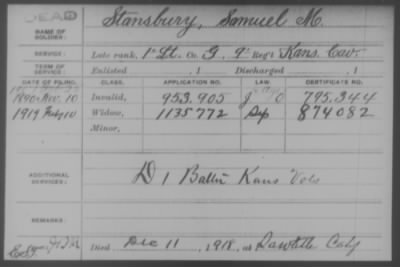 DEAD
NAME OF SOLDIER: Stansbury, Samuel M.
SERVICE: Late rank, 1st Lt. Co. G, 9" Reg't Kans. Cav.
TERM OF SERVICE: Enlisted , 1 Discharged , 1
DATE OF FILING. CLASS. APPLICATION NO. LAW. CERTIFICATE NO.
1890 Nov. 10 Invalid, 953.905 795.344
1919 10 Widow, 1135772 874082
Minor,
ADDITIONAL SERVICES: D 1 Batt'n Kans Vols
REMARKS:
Died Dec 11, 1918, at Sawtelle Calif